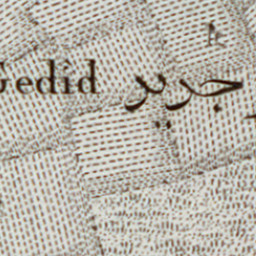 Gedid جديد